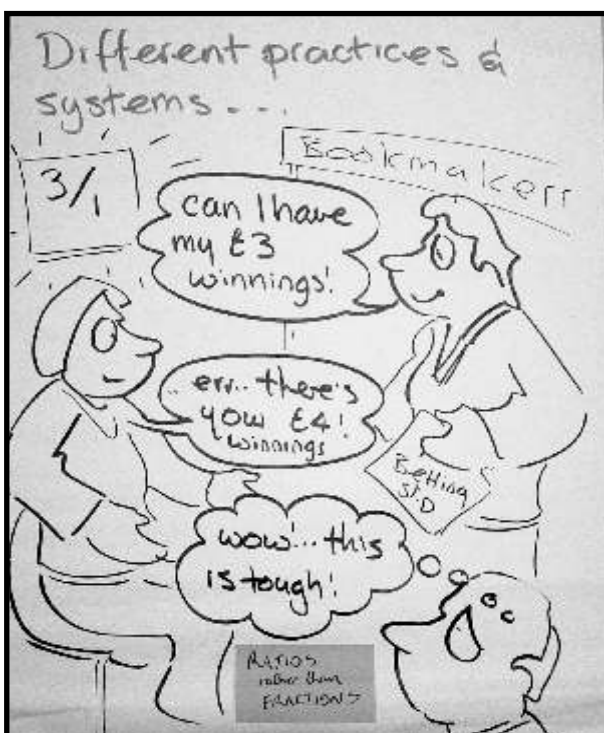 Different practices &
systems ...
Bookmakers
3/1
can I have
my £3
winnings!
..err.. there's
your £4!
winnings
Betting
wow!... this
is tough!
RATIOS
rather than
FRACTIONS